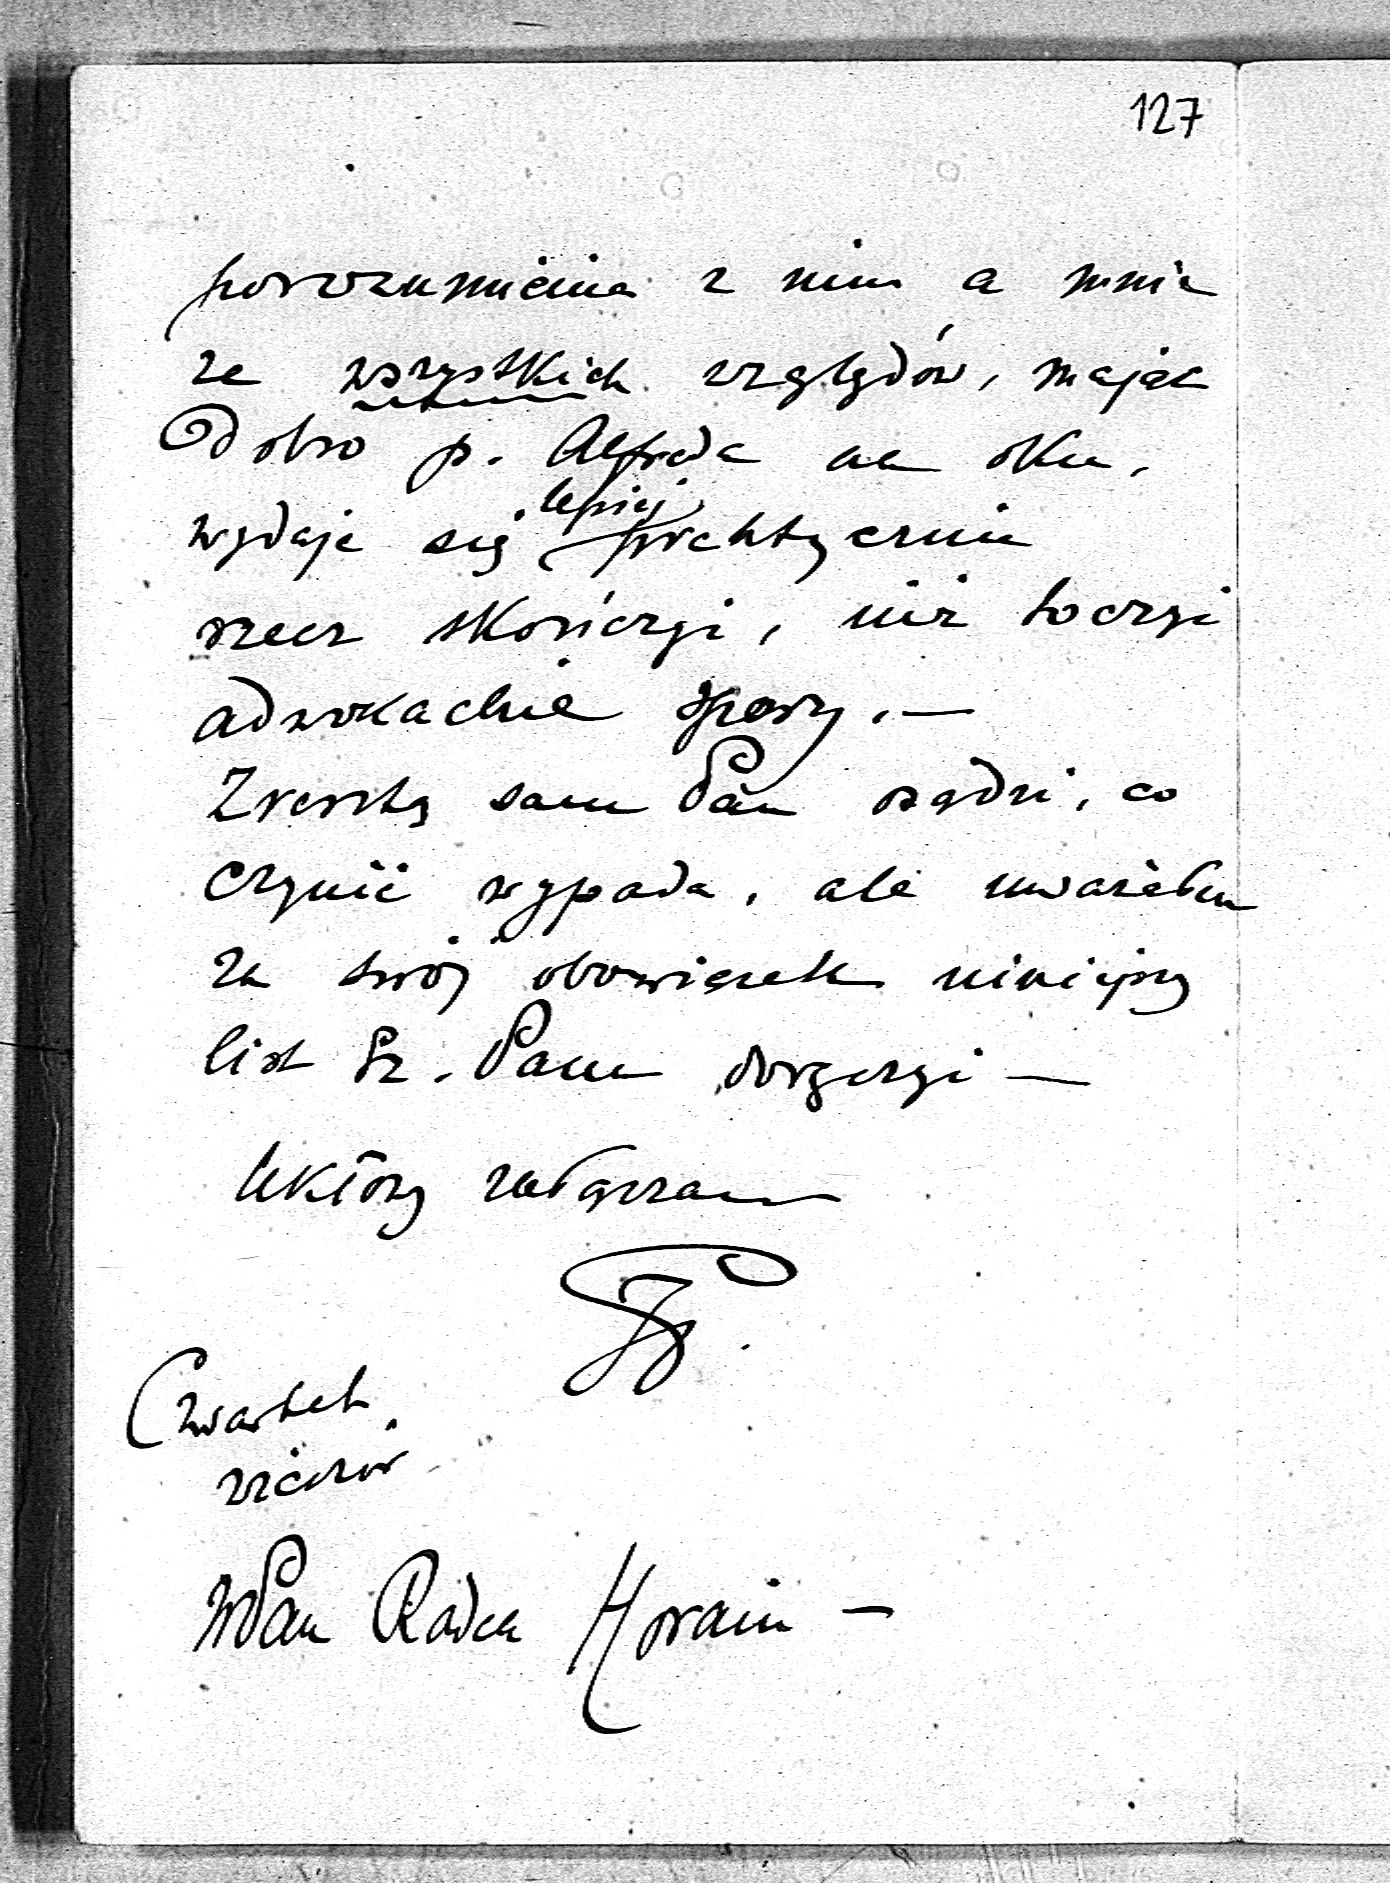 127
porozumienia z nim a mnie
ze wszystkich względów, mając
dobro p. Alfreda na oku,
wydaje się lepiej praktycznie
rzecz skończyć, niż toczyć
adwokackie spory. —
Zresztą sam Pan osądzi, co
czynić wypada, ale uważałem
za swój obowiązek niniejszy
list Sz. Panu doręczyć —
Ukłony załączam
Czwartek
wieczór
WPan Radca Horain —